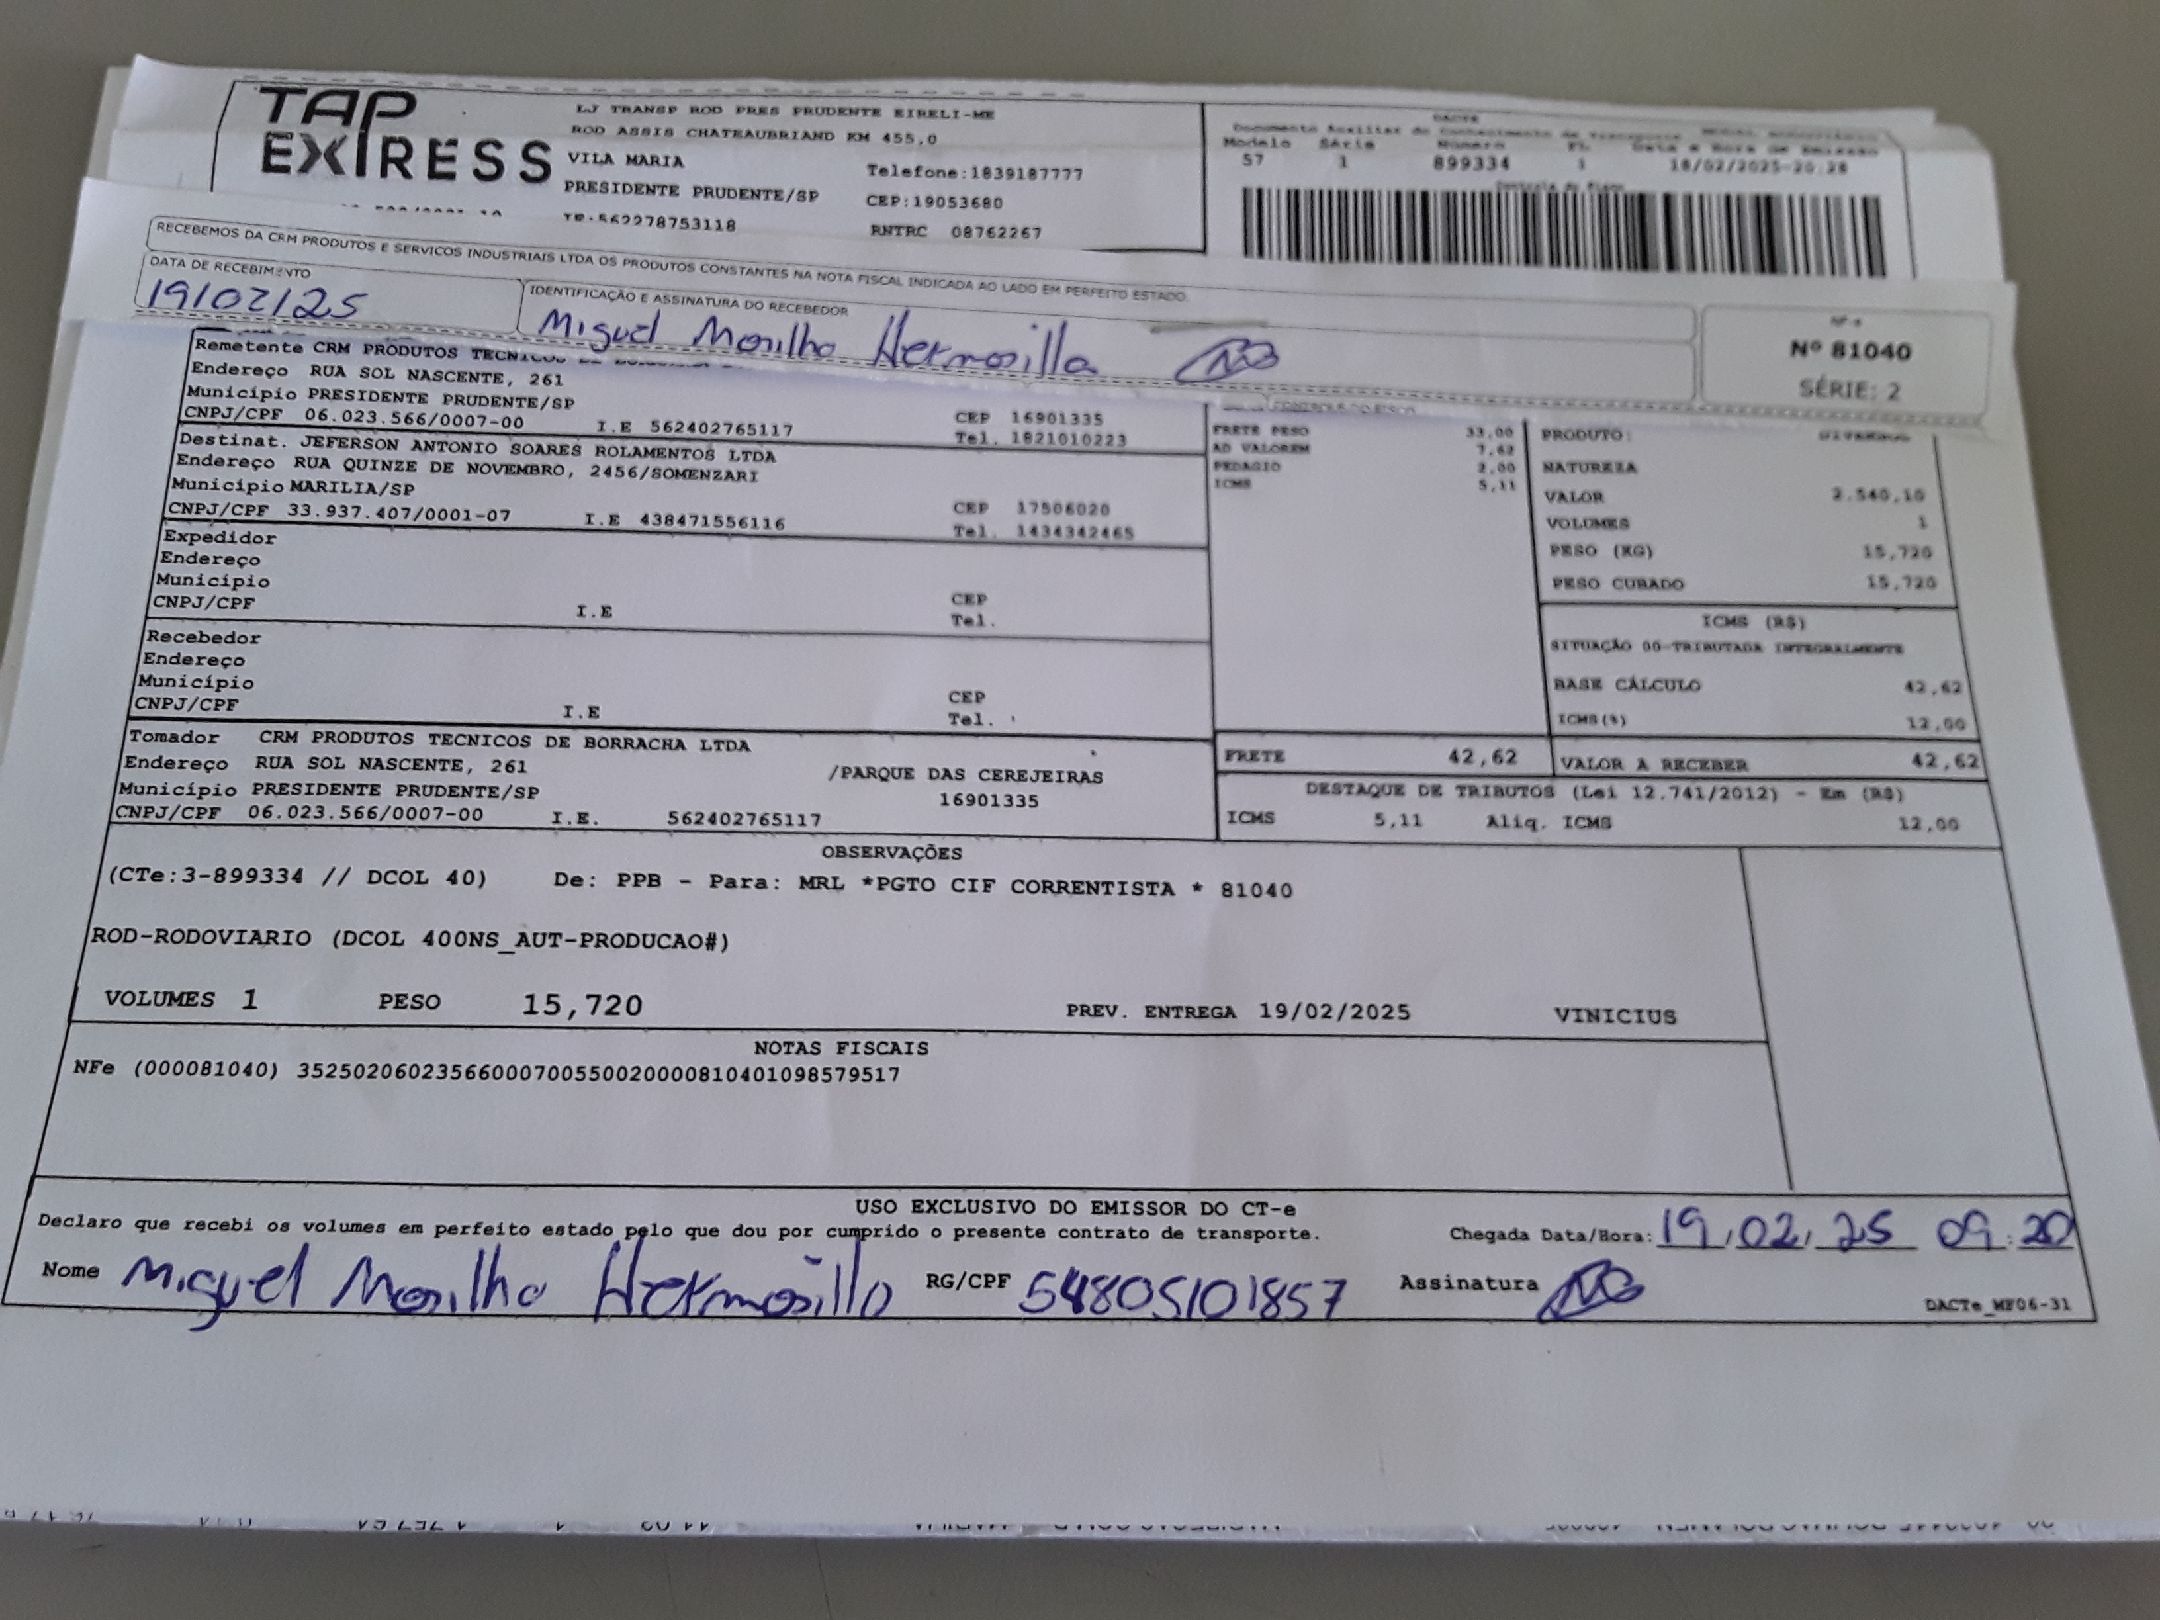 TAP
EXPRESS
LJ TRANSP ROD PRES PRUDENTE EIRELI-ME
ROD ASSIS CHATEAUBRIAND KM 455,0
VILA MARIA
Telefone:1839187777
PRESIDENTE PRUDENTE/SP
CEP:19053680
IE:562278753118
RNTRC 08762267
DACTE
Documento Auxiliar do Conhecimento de Transporte
Modelo Série Número FL Data e Hora de Emissão
57 1 899334 1 18/02/2025-20:28
Controle do Fisco
RECEBEMOS DA CRM PRODUTOS E SERVICOS INDUSTRIAIS LTDA OS PRODUTOS CONSTANTES NA NOTA FISCAL INDICADA AO LADO EM PERFEITO ESTADO.
DATA DE RECEBIMENTO
19/02/25
IDENTIFICAÇÃO E ASSINATURA DO RECEBEDOR
Miguel Morilho Hermosilla
NF-e
Nº 81040
SÉRIE: 2
Remetente CRM PRODUTOS TECNICOS
Endereço RUA SOL NASCENTE, 261
Município PRESIDENTE PRUDENTE/SP
CEP 16901335
CNPJ/CPF 06.023.566/0007-00 I.E 562402765117 Tel. 1821010223
Destinat. JEFERSON ANTONIO SOARES ROLAMENTOS LTDA
Endereço RUA QUINZE DE NOVEMBRO, 2456/SOMENZARI
Município MARILIA/SP
CEP 17506020
CNPJ/CPF 33.937.407/0001-07 I.E 438471556116 Tel. 1434342465
Expedidor
Endereço
Município
CEP
CNPJ/CPF I.E Tel.
Recebedor
Endereço
Município
CEP
CNPJ/CPF I.E Tel.
Tomador CRM PRODUTOS TECNICOS DE BORRACHA LTDA
Endereço RUA SOL NASCENTE, 261 /PARQUE DAS CEREJEIRAS
Município PRESIDENTE PRUDENTE/SP 16901335
CNPJ/CPF 06.023.566/0007-00 I.E. 562402765117
FRETE PESO 33,00
AD VALOREM 7,62
PEDAGIO 2,00
ICMS 5,11
PRODUTO:
NATUREZA
VALOR 2.540,10
VOLUMES 1
PESO (KG) 15,720
PESO CUBADO 15,720
ICMS (R$)
SITUAÇÃO 00-TRIBUTADA INTEGRALMENTE
BASE CÁLCULO 42,62
ICMS(%) 12,00
FRETE 42,62
VALOR A RECEBER 42,62
DESTAQUE DE TRIBUTOS (Lei 12.741/2012) - Em (R$)
ICMS 5,11 Aliq. ICMS 12,00
OBSERVAÇÕES
(CTe:3-899334 // DCOL 40) De: PPB - Para: MRL *PGTO CIF CORRENTISTA * 81040
ROD-RODOVIARIO (DCOL 400NS_AUT-PRODUCAO#)
VOLUMES 1 PESO 15,720 PREV. ENTREGA 19/02/2025 VINICIUS
NOTAS FISCAIS
NFe (000081040) 35250206023566000700550020000810401098579517
USO EXCLUSIVO DO EMISSOR DO CT-e
Declaro que recebi os volumes em perfeito estado pelo que dou por cumprido o presente contrato de transporte.
Chegada Data/Hora: 19/02/25 09:20
Nome Miguel Morilho Hermosilla RG/CPF 54805101857 Assinatura
DACTe_MF06-31